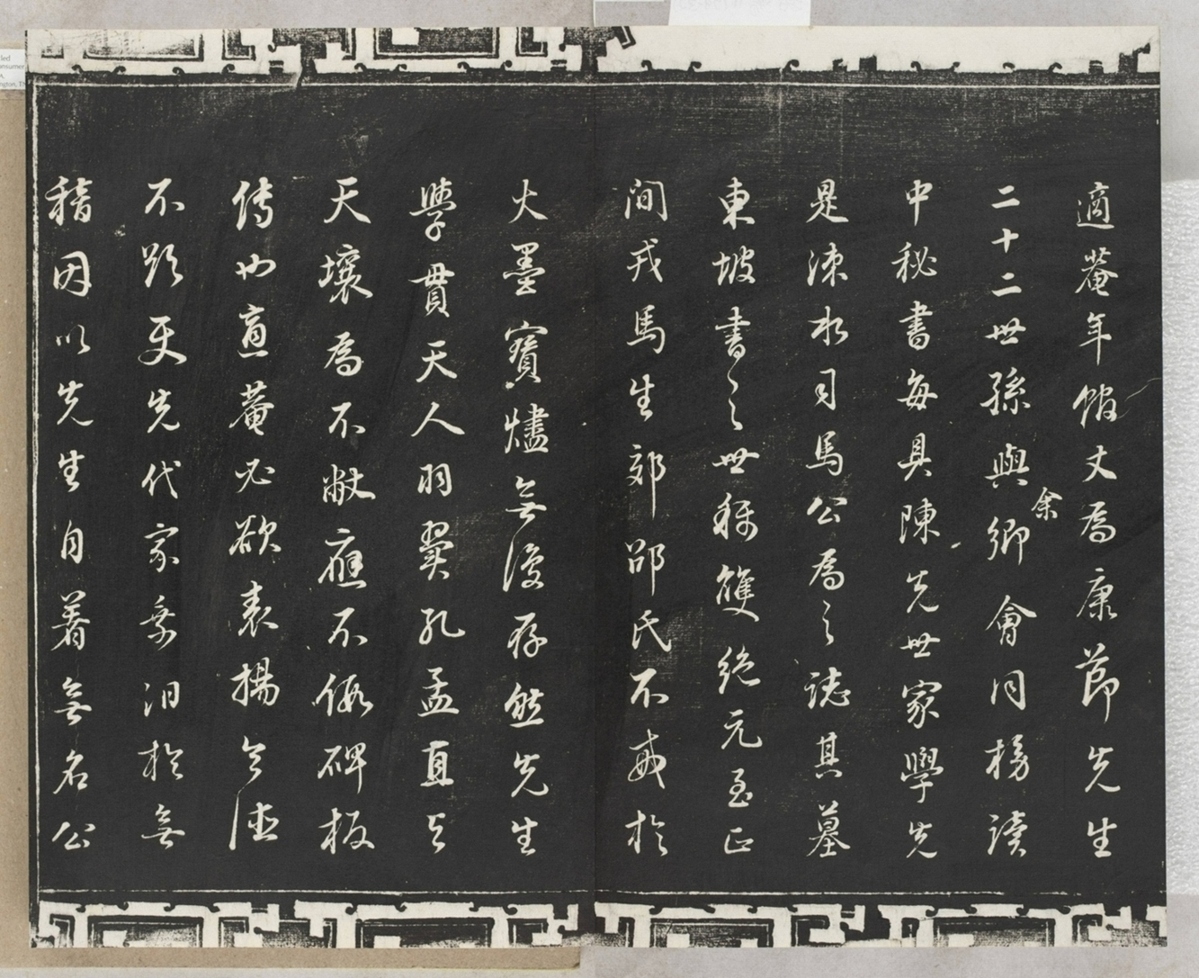 適菴年館丈為康節先生
二十二世孫與余鄉會同榜讀
中秘書每具陳先世家學先
是涑水司馬公為之誌其墓
東坡書之世稱雙絕元至正
間戎馬生郊邵氏不戒於
火墨寶燼無復存然先生
學貫天人羽翼孔孟直與
天壤為不敝應不假碑板
傳也適菴必欲表揚令德
不更先代家乘汩於無
稽因以先生自著無名公